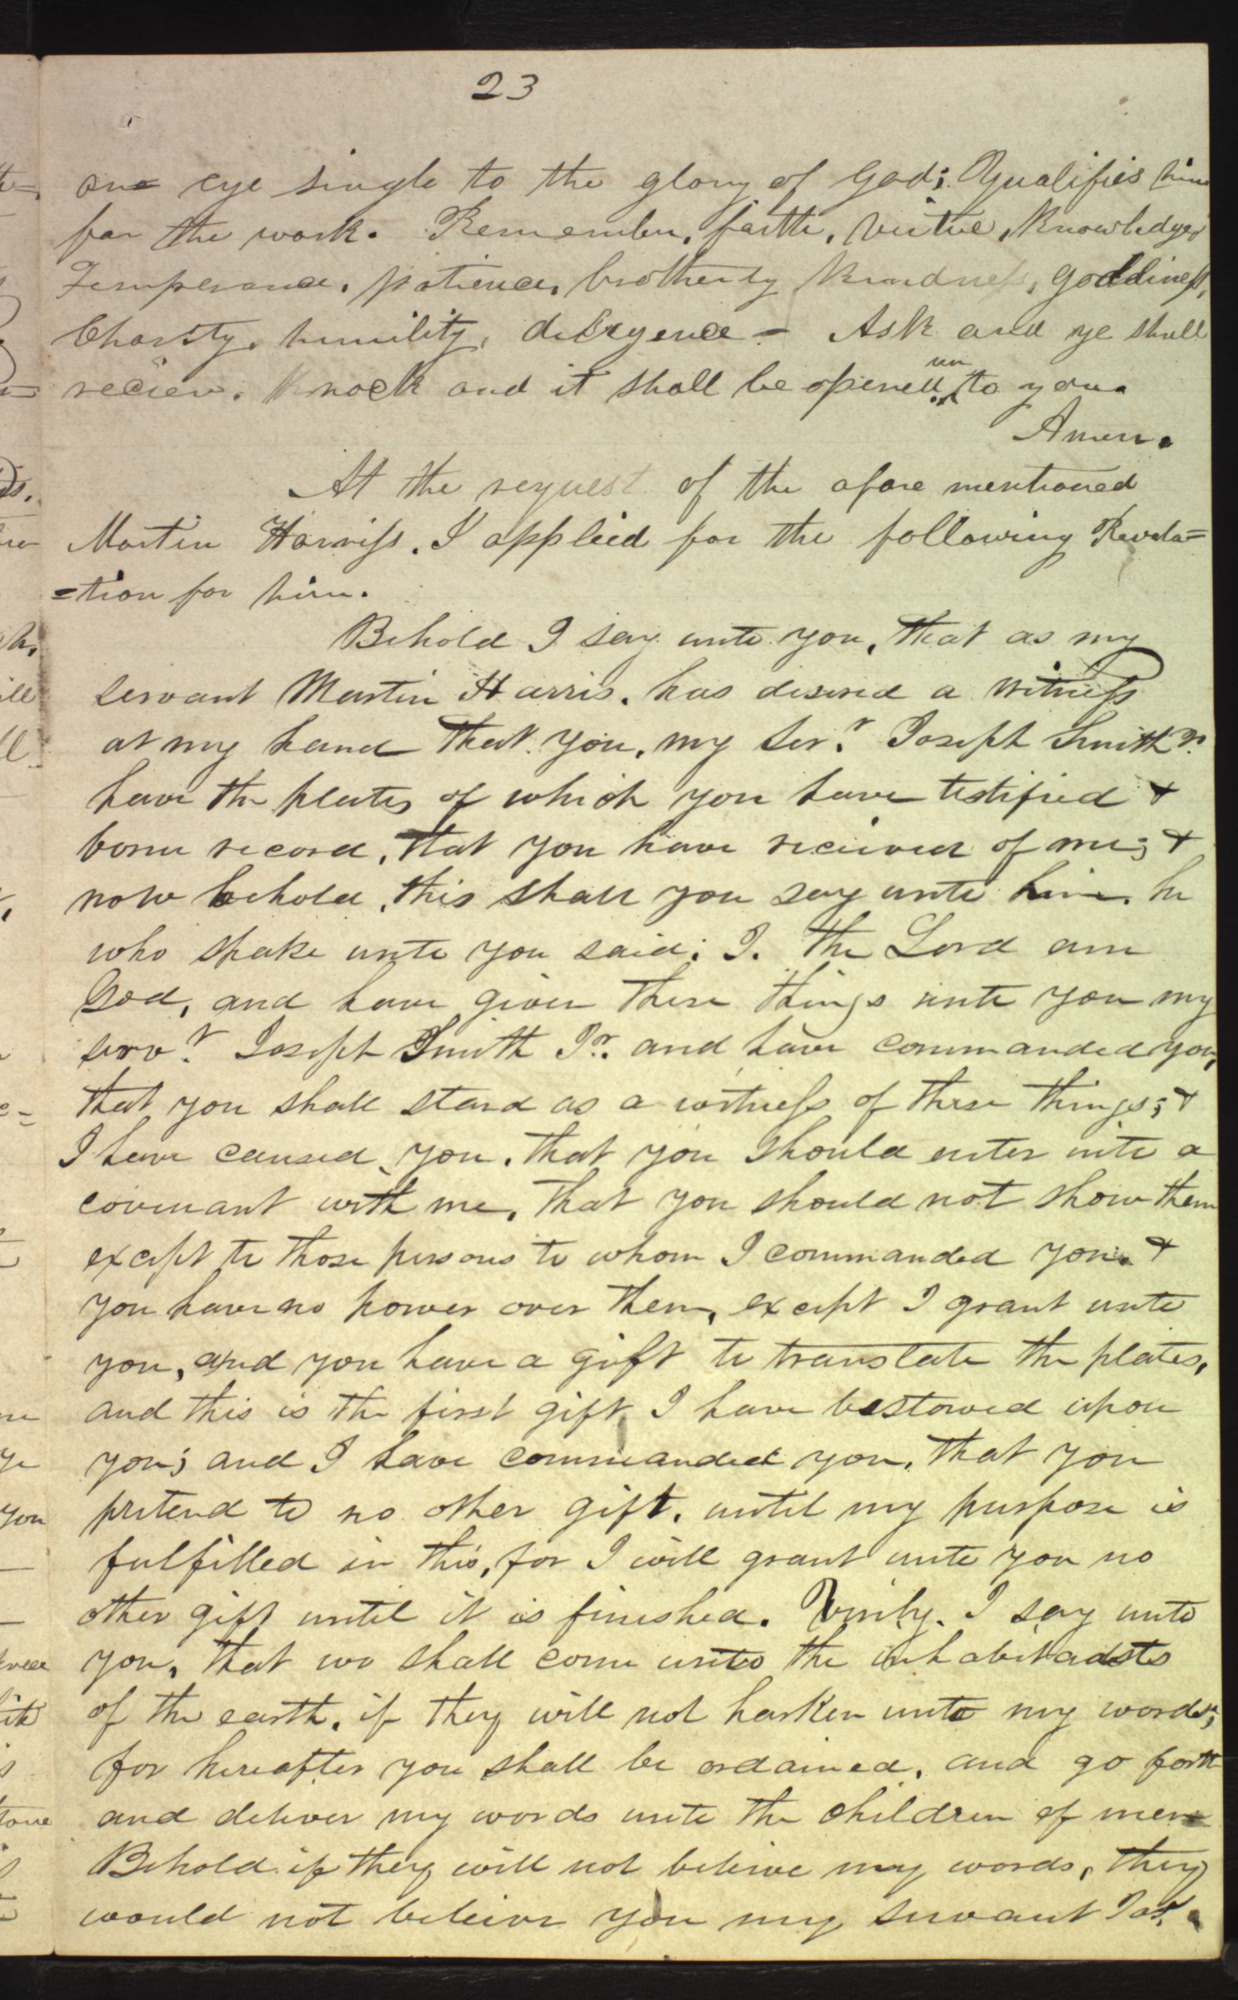 23
one eye single to the glory of God; Qualifies him
for the work. Remember, faith, virtue, Knowledge,
Temperance, patience, brotherly kindness, godliness,
Charity, humility, diligence = Ask and ye shall
reciev. Knock and it shall be opened unto you.
Amen.
At the request of the afore mentioned
Martin Harriss. I applied for the following Revela=
=tion for him.
Behold I say unto you, that as my
servant Martin Harris. has desired a witness
at my hand that you, my Servt. Joseph Smith Jr.
have the plates of which you have testified &
borne record, that you have recieved of me; &
now behold, this shall you say unto him. he
who spake unto you said; I. the Lord am
God, and have given these things unto you my
servt. Joseph Smith Jr. and have commanded you,
that you shall stand as a witness of these things; &
I have caused you, that you should enter into a
covenant with me, that you should not show them
except to those persons to whom I commanded you. &
you have no power over them, except I grant unto
you, and you have a gift to translate the plates,
and this is the first gift I have bestowed upon
you; and I have commanded you, that you
pretend to no other gift, until my purpose is
fulfilled in this, for I will grant unto you no
other gift until it is finished. Verily, I say unto
you, that wo shall come unto the inhabitants
of the earth, if they will not harken unto my words;
for hereafter you shall be ordained, and go forth
and deliver my words unto the children of men
Behold if they will not believe my words, they
would not believe you my servant Jos.